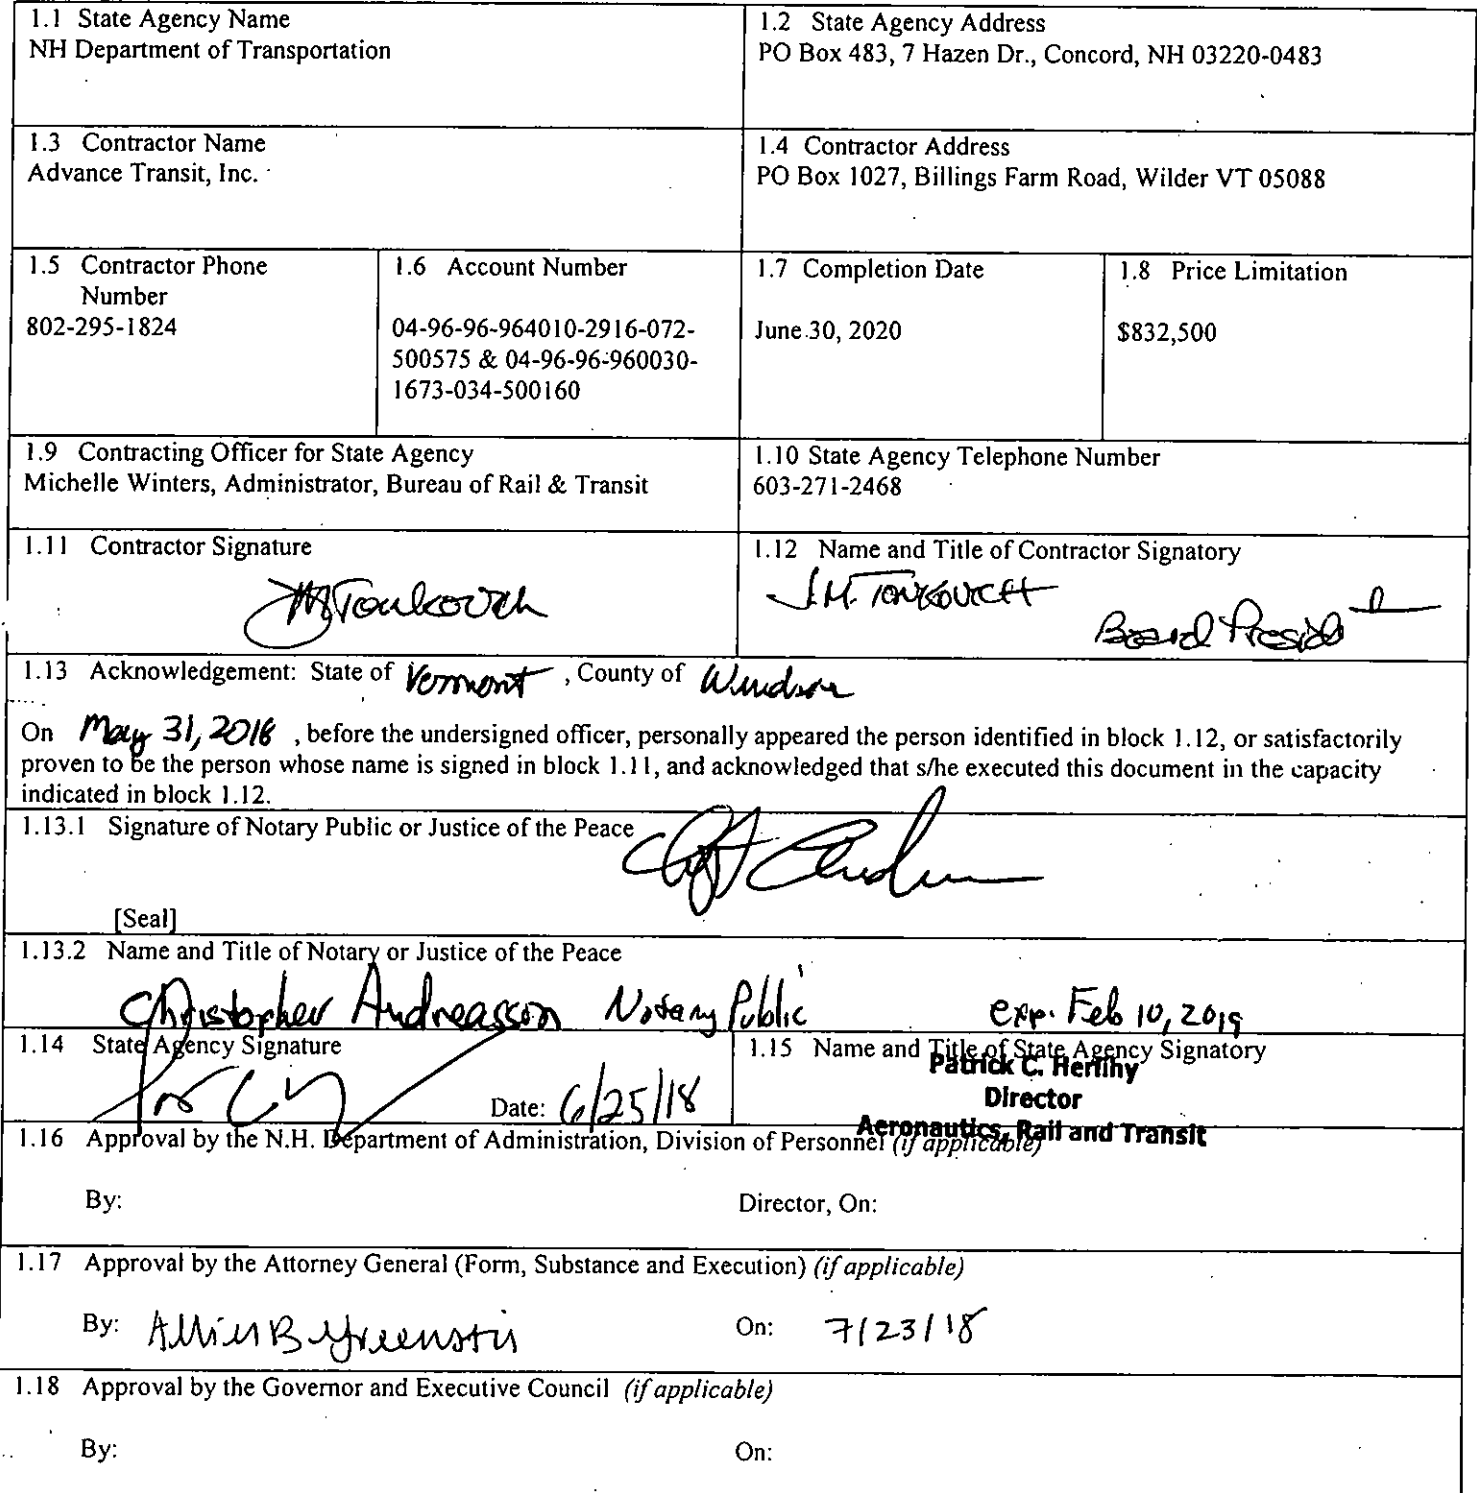 1.1 State Agency Name
NH Department of Transportation
1.2 State Agency Address
PO Box 483, 7 Hazen Dr., Concord, NH 03220-0483
1.3 Contractor Name
Advance Transit, Inc.
1.4 Contractor Address
PO Box 1027, Billings Farm Road, Wilder VT 05088
1.5 Contractor Phone
Number
802-295-1824
1.6 Account Number
04-96-96-964010-2916-072-
500575 & 04-96-96-960030-
1673-034-500160
1.7 Completion Date
June 30, 2020
1.8 Price Limitation
$832,500
1.9 Contracting Officer for State Agency
Michelle Winters, Administrator, Bureau of Rail & Transit
1.10 State Agency Telephone Number
603-271-2468
1.11 Contractor Signature
JMTonkovich
1.12 Name and Title of Contractor Signatory
J.M. TONKOVICH
Board President
1.13 Acknowledgement: State of Vermont, County of Windsor
On May 31, 2018, before the undersigned officer, personally appeared the person identified in block 1.12, or satisfactorily
proven to be the person whose name is signed in block 1.11, and acknowledged that s/he executed this document in the capacity
indicated in block 1.12.
1.13.1 Signature of Notary Public or Justice of the Peace
[Seal]
1.13.2 Name and Title of Notary or Justice of the Peace
Christopher Andreasson Notary Public exp. Feb 10, 2019
1.14 State Agency Signature
Date: 6/25/18
1.15 Name and Title of State Agency Signatory
Patrick C. Herlihy
Director
Aeronautics, Rail and Transit
1.16 Approval by the N.H. Department of Administration, Division of Personnel (if applicable)
By:
Director, On:
1.17 Approval by the Attorney General (Form, Substance and Execution) (if applicable)
By: Allison B Greenstein
On: 7/23/18
1.18 Approval by the Governor and Executive Council (if applicable)
By:
On: